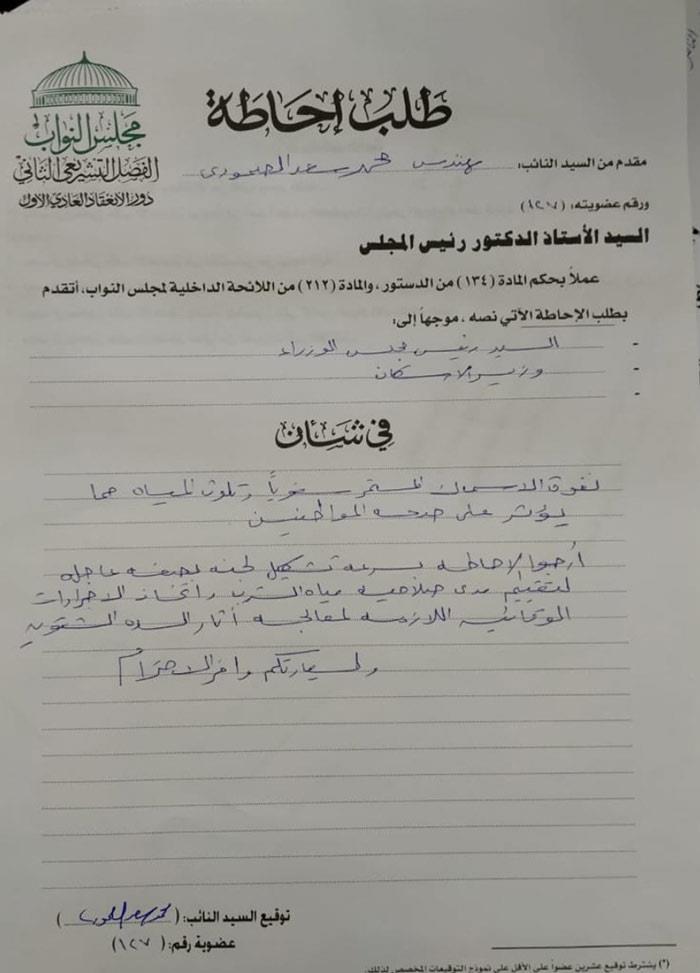 مجلس النواب
الفصل التشريعي الثاني
دور الانعقاد العادي الأول
طلب إحاطة
مقدم من السيد النائب: مهندس محمد سعد الصمودى
ورقم عضويته: (١٢٧)
السيد الأستاذ الدكتور رئيس المجلس
عملاً بحكم المادة (١٣٤) من الدستور، والمادة (٢١٢) من اللائحة الداخلية لمجلس النواب، أتقدم
بطلب الإحاطة الآتي نصه، موجهاً إلى:
- السيد رئيس مجلس الوزراء
- وزير الاسكان
-
في شأن
نفوق الاسماك المستمر سنوياً وتلوث المياه مما
يؤثر على صحة المواطنين
أرجوا الاحاطه بسرعة تشكيل لجنه بصفه عاجله
لتقييم مدى صلاحيه مياه الشرب واتخاذ الاجراءات
الوقائيه اللازمه لمعالجه أثار السده الشتويه
ولسيادتكم وافر الاحترام
توقيع السيد النائب: ( )
عضوية رقم: (١٢٧)
(*) يشترط توقيع عشرين عضواً على الأقل على نموذج التوقيعات المخصص لذلك.